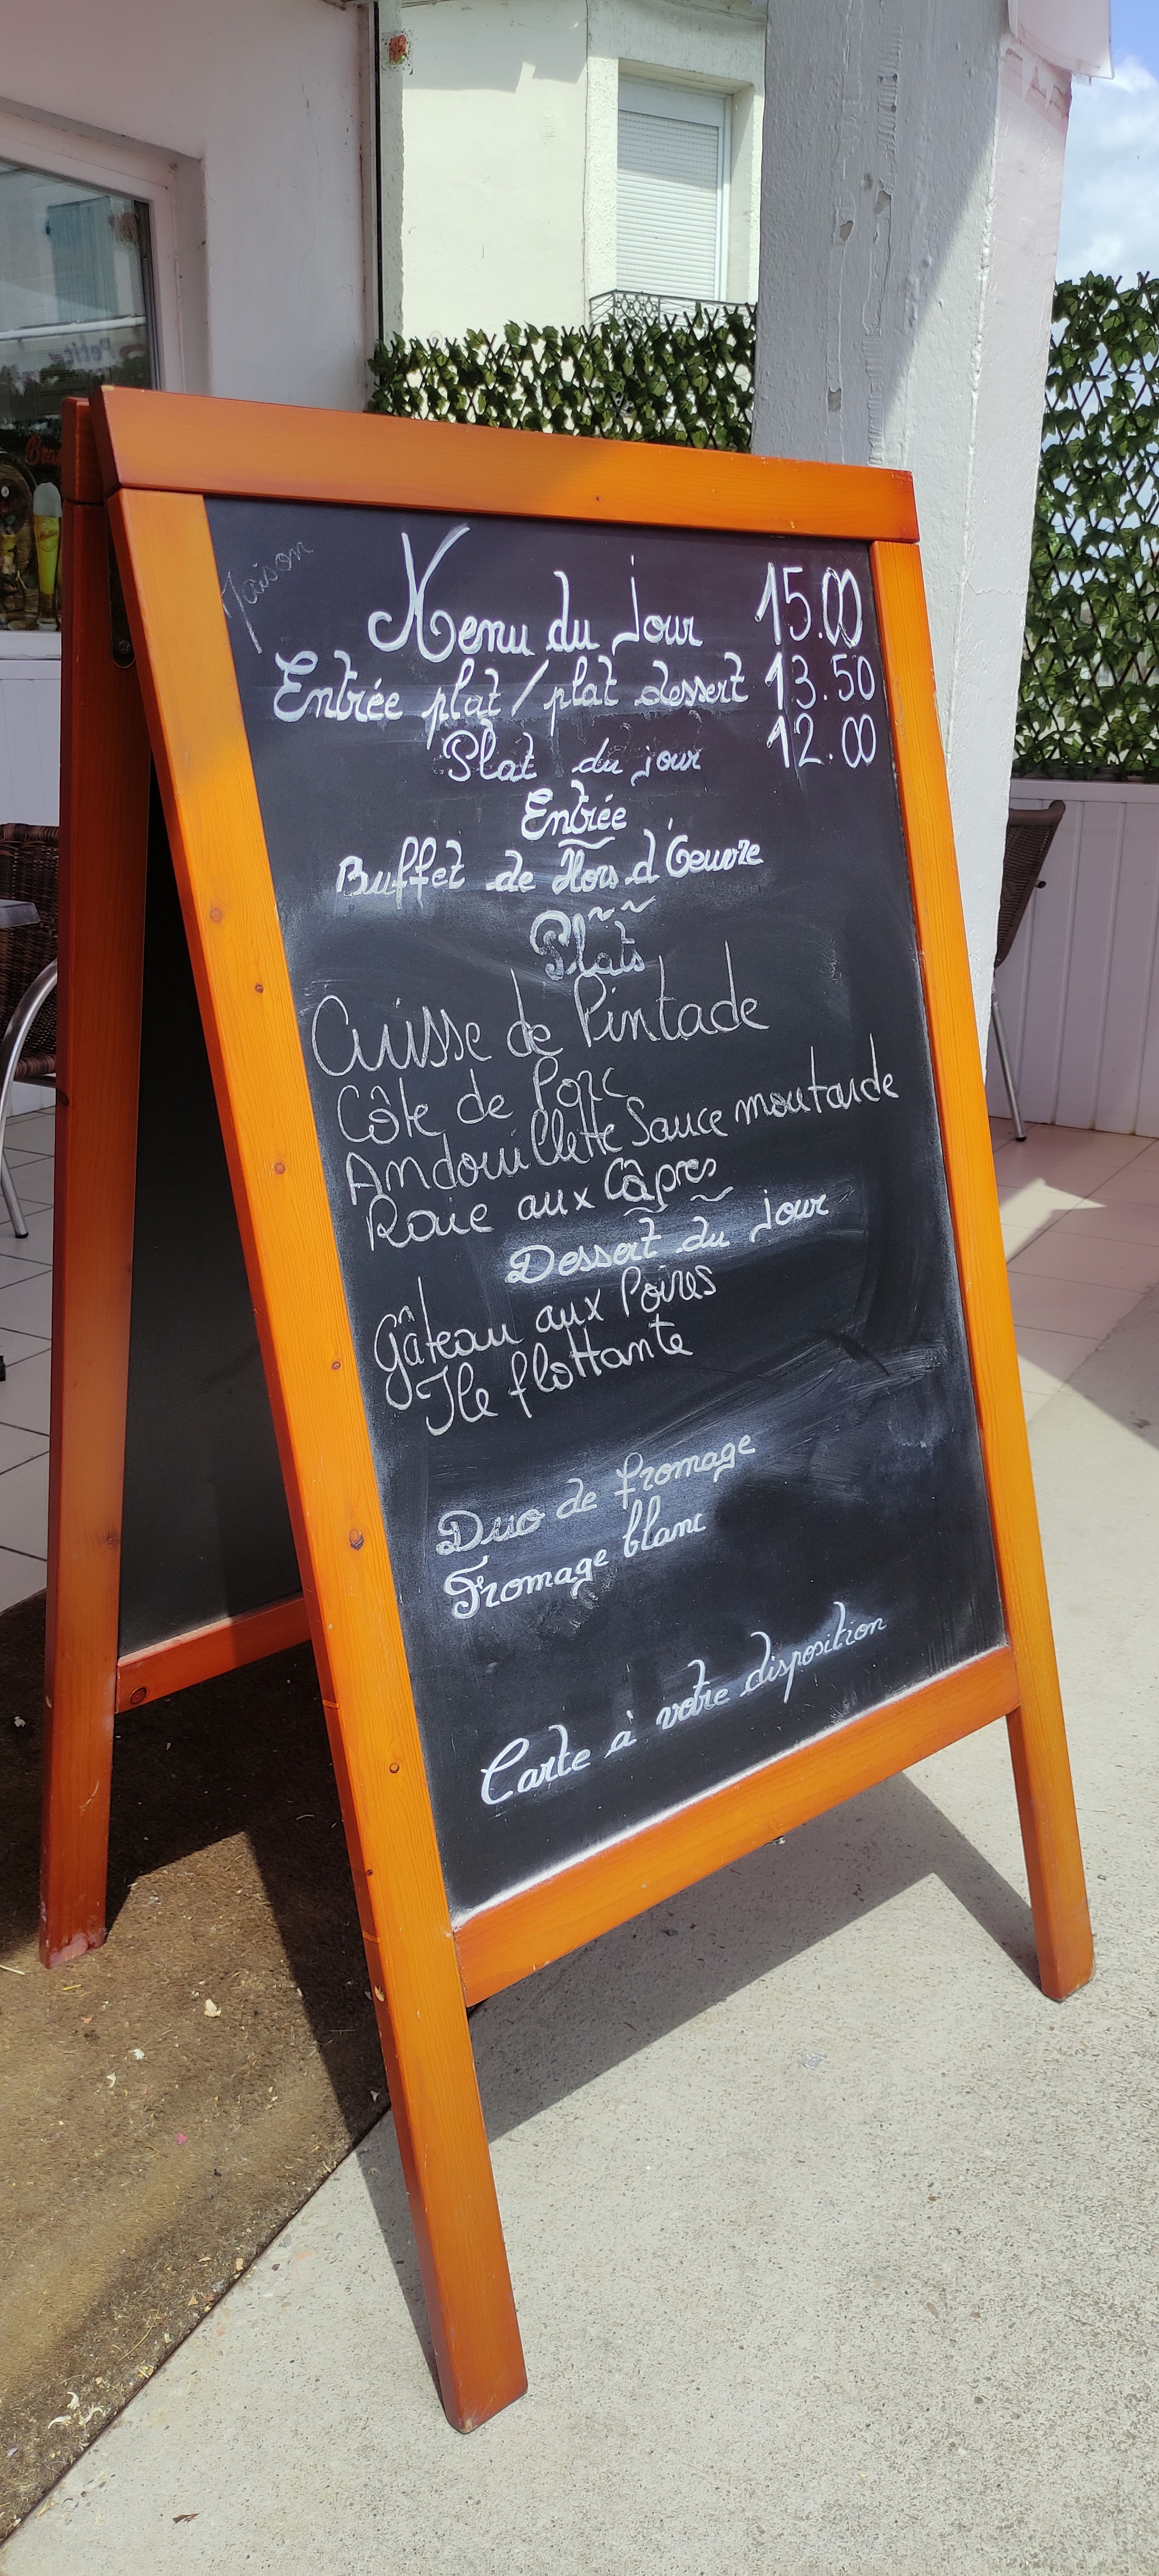 Maison
Menu du jour 15.00
Entrée plat / plat dessert 13.50
Plat du jour 12.00
Entrée
Buffet de Hors d'Oeuvre
Plats
Cuisse de Pintade
Côte de Porc
Andouillette Sauce moutarde
Raie aux Câpres
Dessert du jour
Gâteau aux Poires
Ile flottante
Duo de fromage
Fromage blanc
Carte à votre disposition